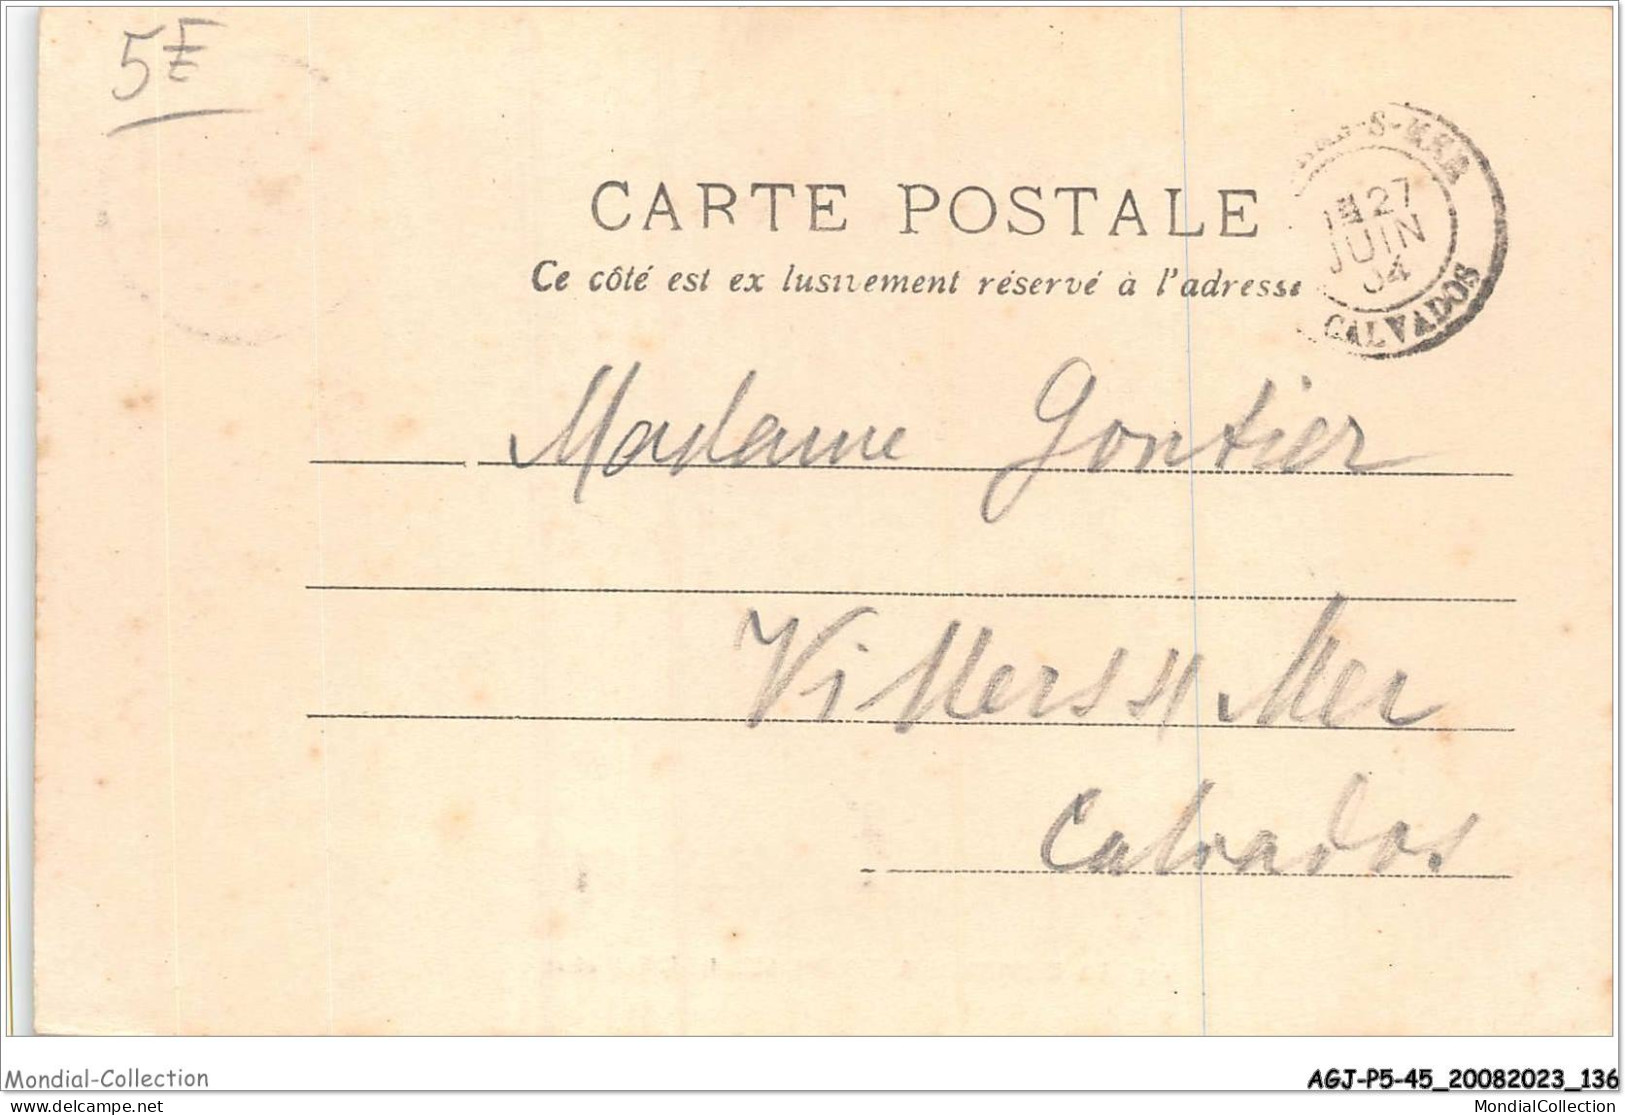 5F
CARTE POSTALE
Ce côté est ex lusivement réservé à l'adresse
S-MER
27
JUIN
04
CALVADOS
Madame Gontier
Villers s/ Mer
Calvados
Mondial-Collection
AGJ-P5-45_20082023_136
delcampe.net
MondialCollection